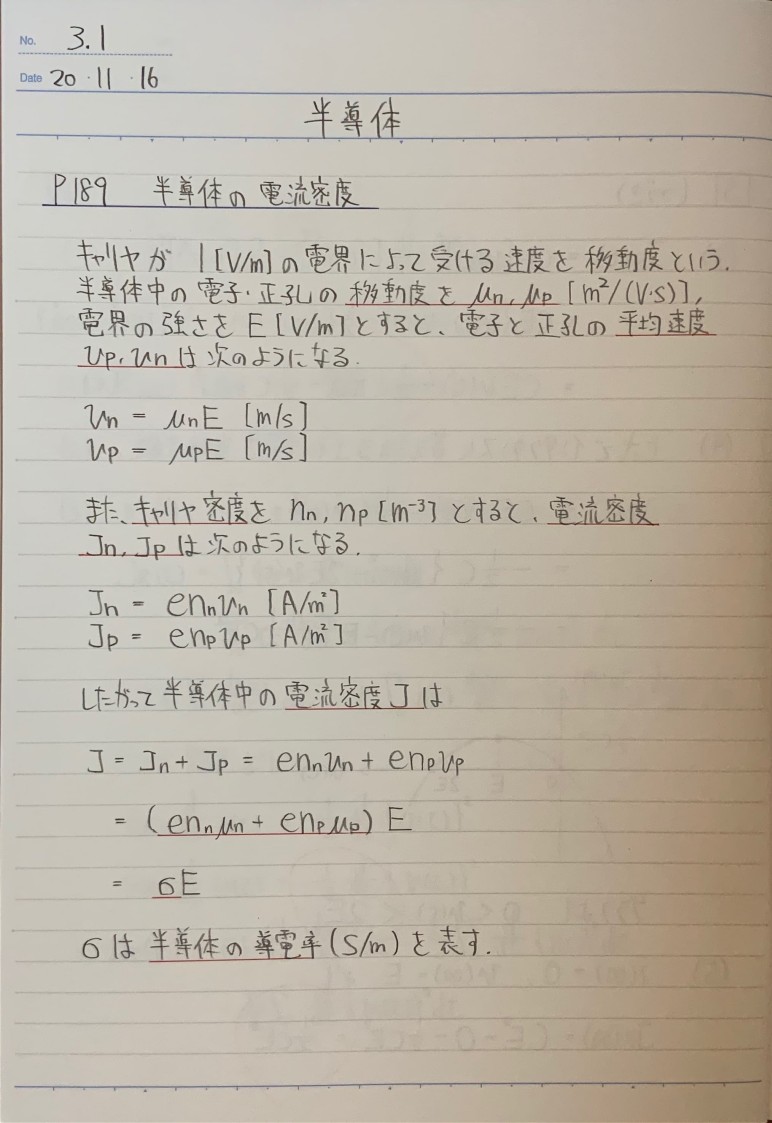 No. 3.1
Date 20・11・16
半導体
P189 半導体の電流密度
キャリヤが 1[V/m]の電界によって受ける速度を移動度という.
半導体中の電子・正孔の移動度をμn,μp [m²/(V·s)],
電界の強さをE[V/m]とすると、電子と正孔の平均速度
υp,υnは次のようになる.
υn = μnE [m/s]
υp = μpE [m/s]
また、キャリヤ密度を nn,np [m⁻³] とすると、電流密度
Jn,Jpは次のようになる.
Jn = ennυn [A/m²]
Jp = enpυp [A/m²]
したがって半導体中の電流密度Jは
J = Jn + Jp = ennυn + enpυp
= (ennμn + enpμp) E
= σE
σは半導体の導電率(S/m)を表す.